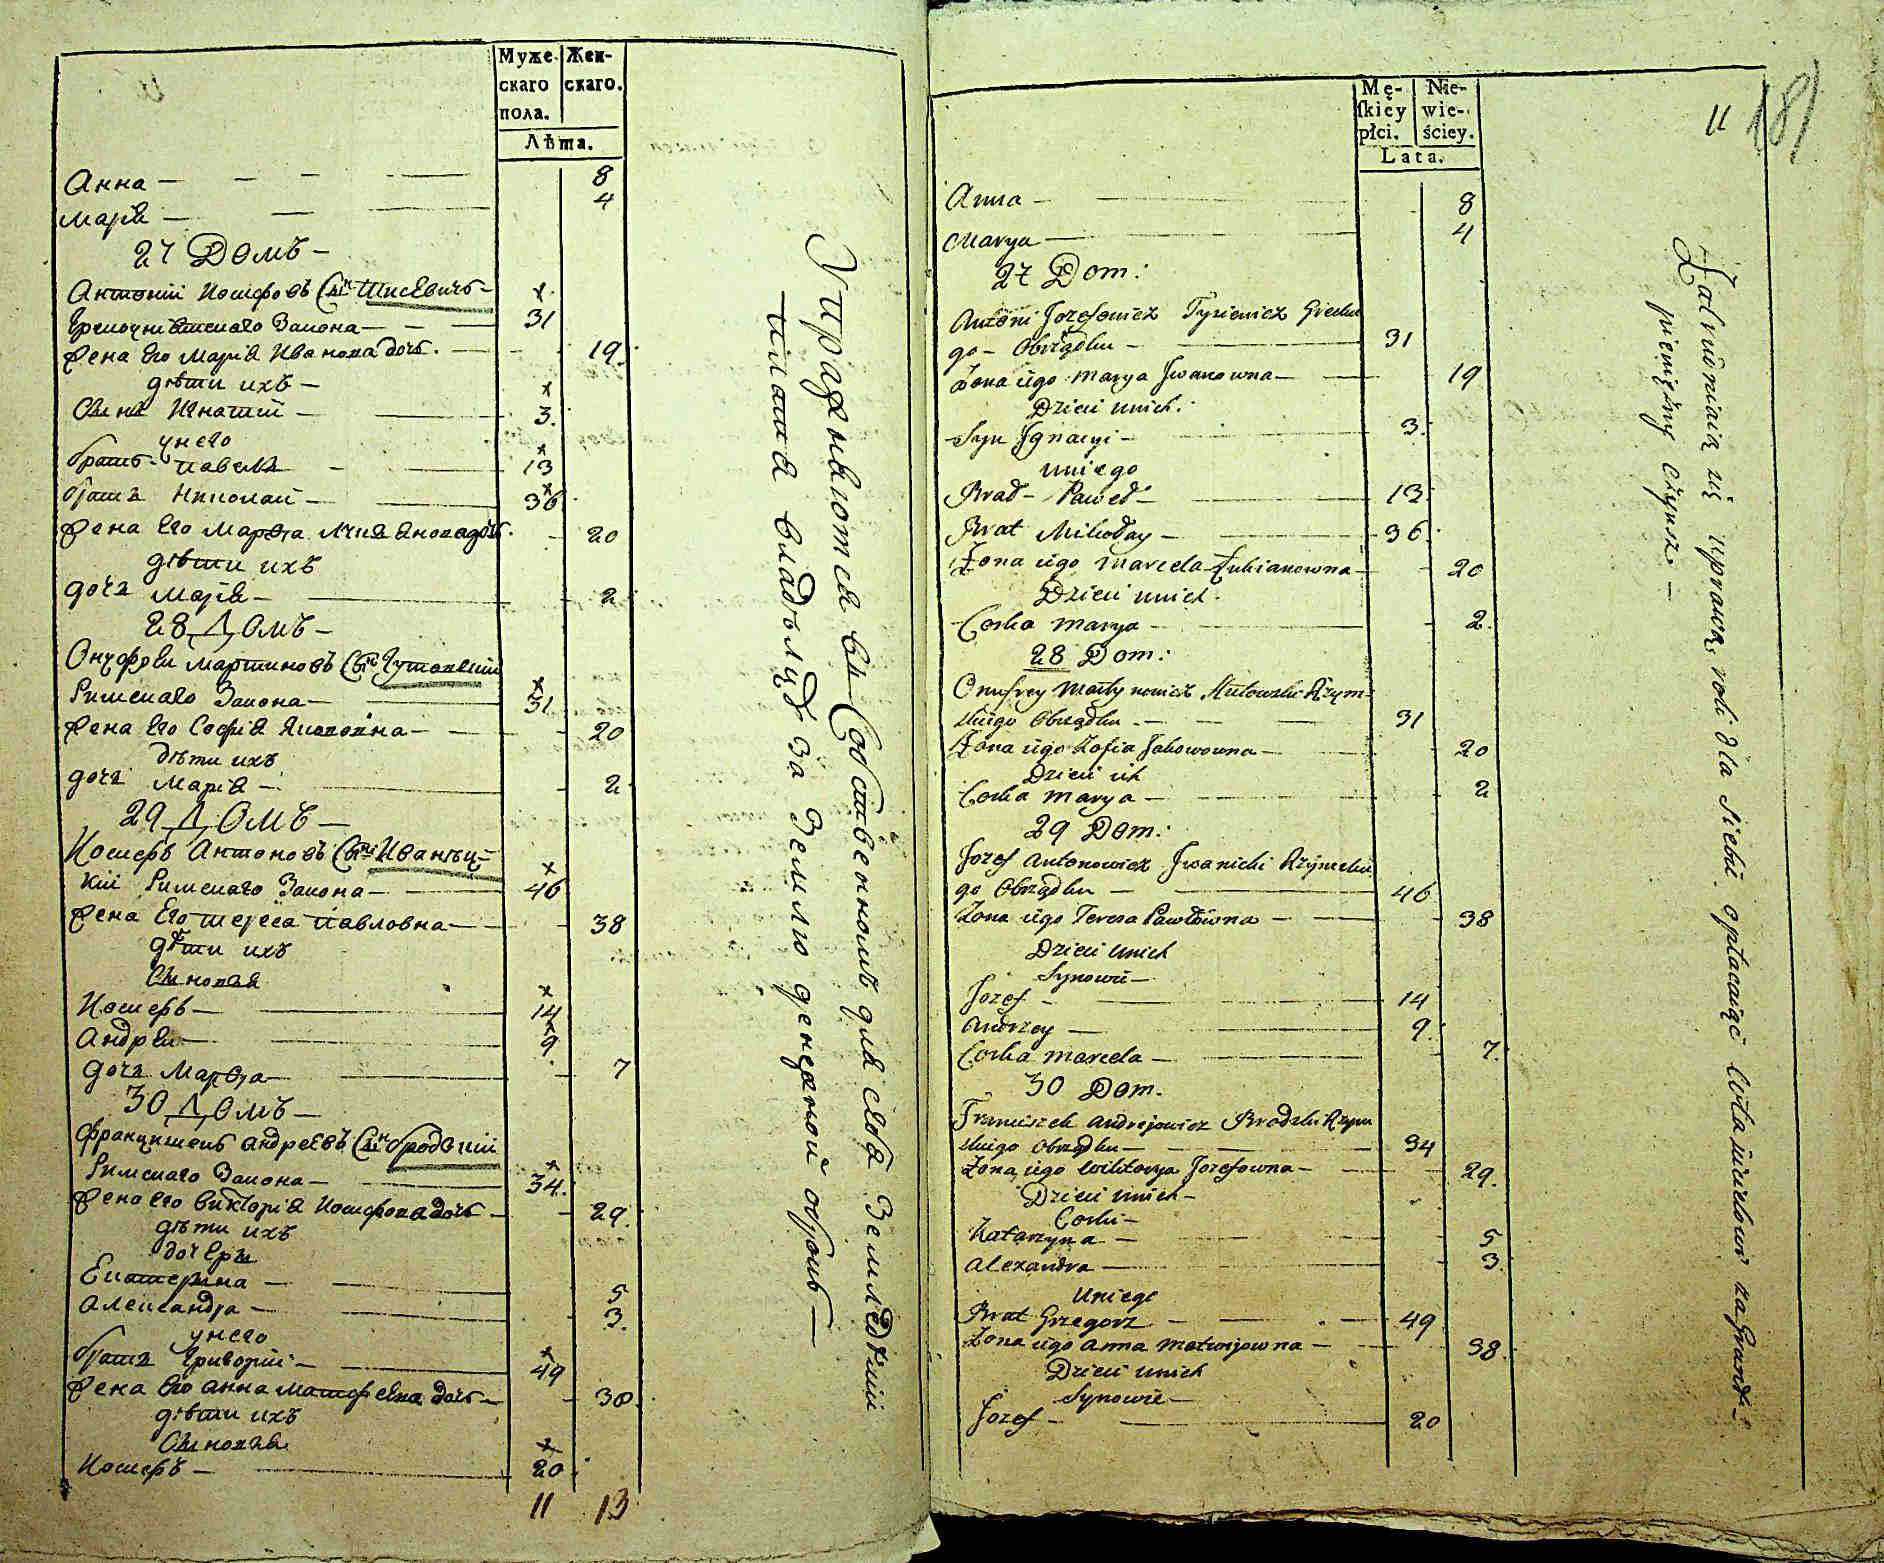 Муже-
скаго
пола.
Жен-
скаго.
Лѣта.
Анна — 8
Марія — 4
27 Домъ —
Антоній Іосифовъ Сынъ Тисевичъ —
Греночнисскаго Закона — 31
Жена Его Марія Иванова дочь. — 19.
дѣти ихъ —
Сынъ Игнатій — 3.
у него
братъ — Павелъ — 13
братъ Николай — 36
Жена Его Марѳа Лукіянова дочь — 20
дѣти ихъ
дочь Марія — 2
28 Домъ —
Онуфрей Мартиновъ Сынъ
Римскаго Закона — 31
Жена Его Софія Якововна — 20
дѣти ихъ
дочь Марія — 2
29 Домъ —
Іосифъ Антоновъ Сынъ Иваниц-
кій Римскаго Закона — 46
Жена Его Тереса Павловна — 38
дѣти ихъ
Сыновья
Іосифъ — 14
Андрей — 9
дочь Марѳа — 7
30 Домъ —
Францишекъ Андреевъ Сынъ Бродскій
Римскаго Закона — 34.
Жена Его Викторія Іосифова дочь — 29.
дѣти ихъ
дочери
Екатерина — 5
Александра — 3.
у него
братъ Григорій — 49
Жена Его Анна Матфеева дочь — 38
дѣти ихъ
Сыновья
Іосифъ — 20
11 13
Упражняются въ Собственномъ для себя Земледѣліи
платя владѣльцу за Землю денежной оброкъ —
Mę-
skiey
płci.
Nie-
wie-
ściey.
Lata.
11
181
Anna — 8
Marya — 4
27 Dom:
Antoni Jozefowicz Tysiewicz Grecku
go — Obrządku — 31
Zona iego Marya Jwanowna — 19
Dzieci unich:
Syn Jgnacyi — 3.
uniego
Brad — Paweł — 13
Brat Mikołay — 36.
Zona iego Marcela Łukianowna — 20
Dzieci unich.
Corka Marya — 2.
28 Dom:
Onufrey Martynowicz Rzym-
skiego Obrządku — 31
Zona iego Zofia Jakowowna — 20
Dzieci ich
Corka Marya — 2
29 Dom:
Jozef Antonowicz Jwanicki Rzymsku
go Obrządku — 46
Zona iego Teresa Pawłowna — 38
Dzieci unich
Synowie —
Jozef — 14
Andrzey — 9.
Corka Marcela — 7.
30 Dom.
Franciszek Andrejowicz Brodzki Rzym
skiego Obrządku — 34
Zona iego Wiktorya Jozefowna — 29.
Dzieci unich —
Corki —
Katarzyna — 5
Alexandra — 3.
Uniego
Brat Grzegorz — 49
Zona iego Anna Matwijowna — 38.
Dzieci unich
Synowie —
Jozef — 20
Zatrudniaią się uprawką roli dla siebie opłacaiąc Właścicielowi za Grunt —
pieniężny Czynsz —